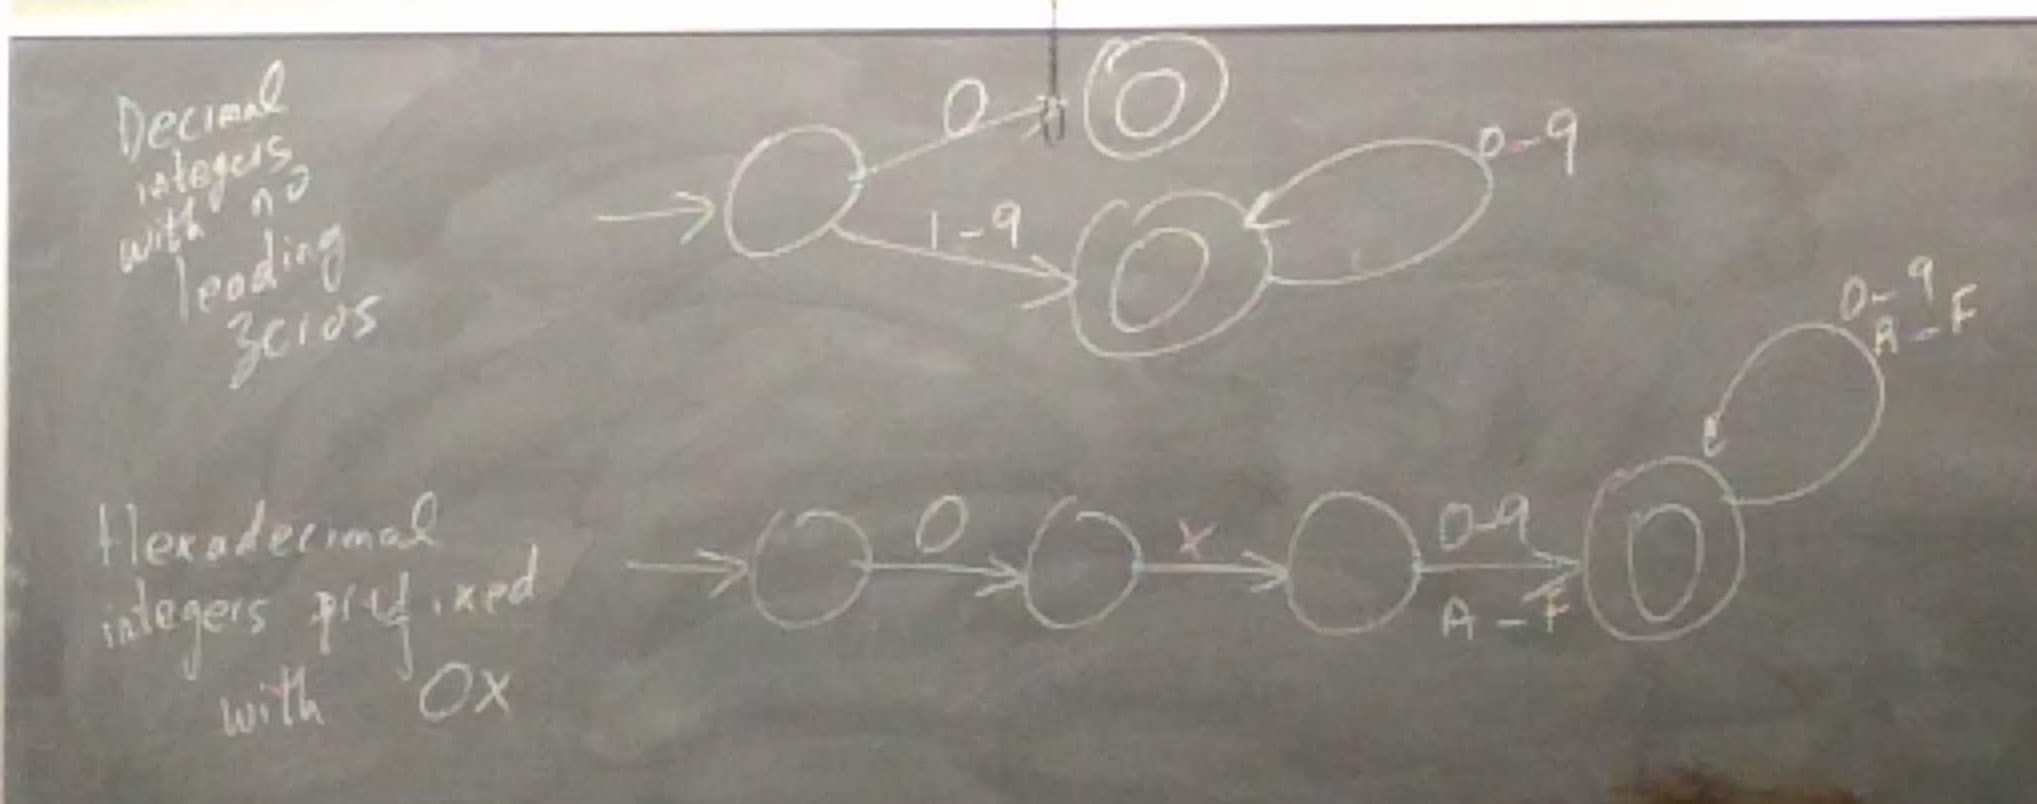 Decimal
integers
with no
leading
zeros
0
1-9
0-9
Hexadecimal
integers prefixed
with 0x
0
x
0-9
A-F
0-9
A-F